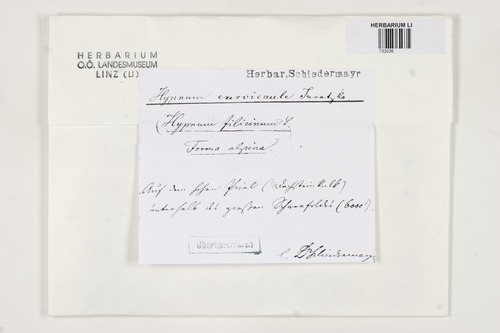 HERBARIUM LI
HERBARIUM
O.Ö. LANDESMUSEUM
LINZ (LI)
Herbar, Schiedermayr
Hypnum curvicaule Juratzka
(Hypnum filicinum L.
Forma alpina.
Auf dem hohen Priel (Dachsteinkalk)
unterhalb des großen Schneefeldes (6000').
Oberösterreich
l. Dr Schiedermayr